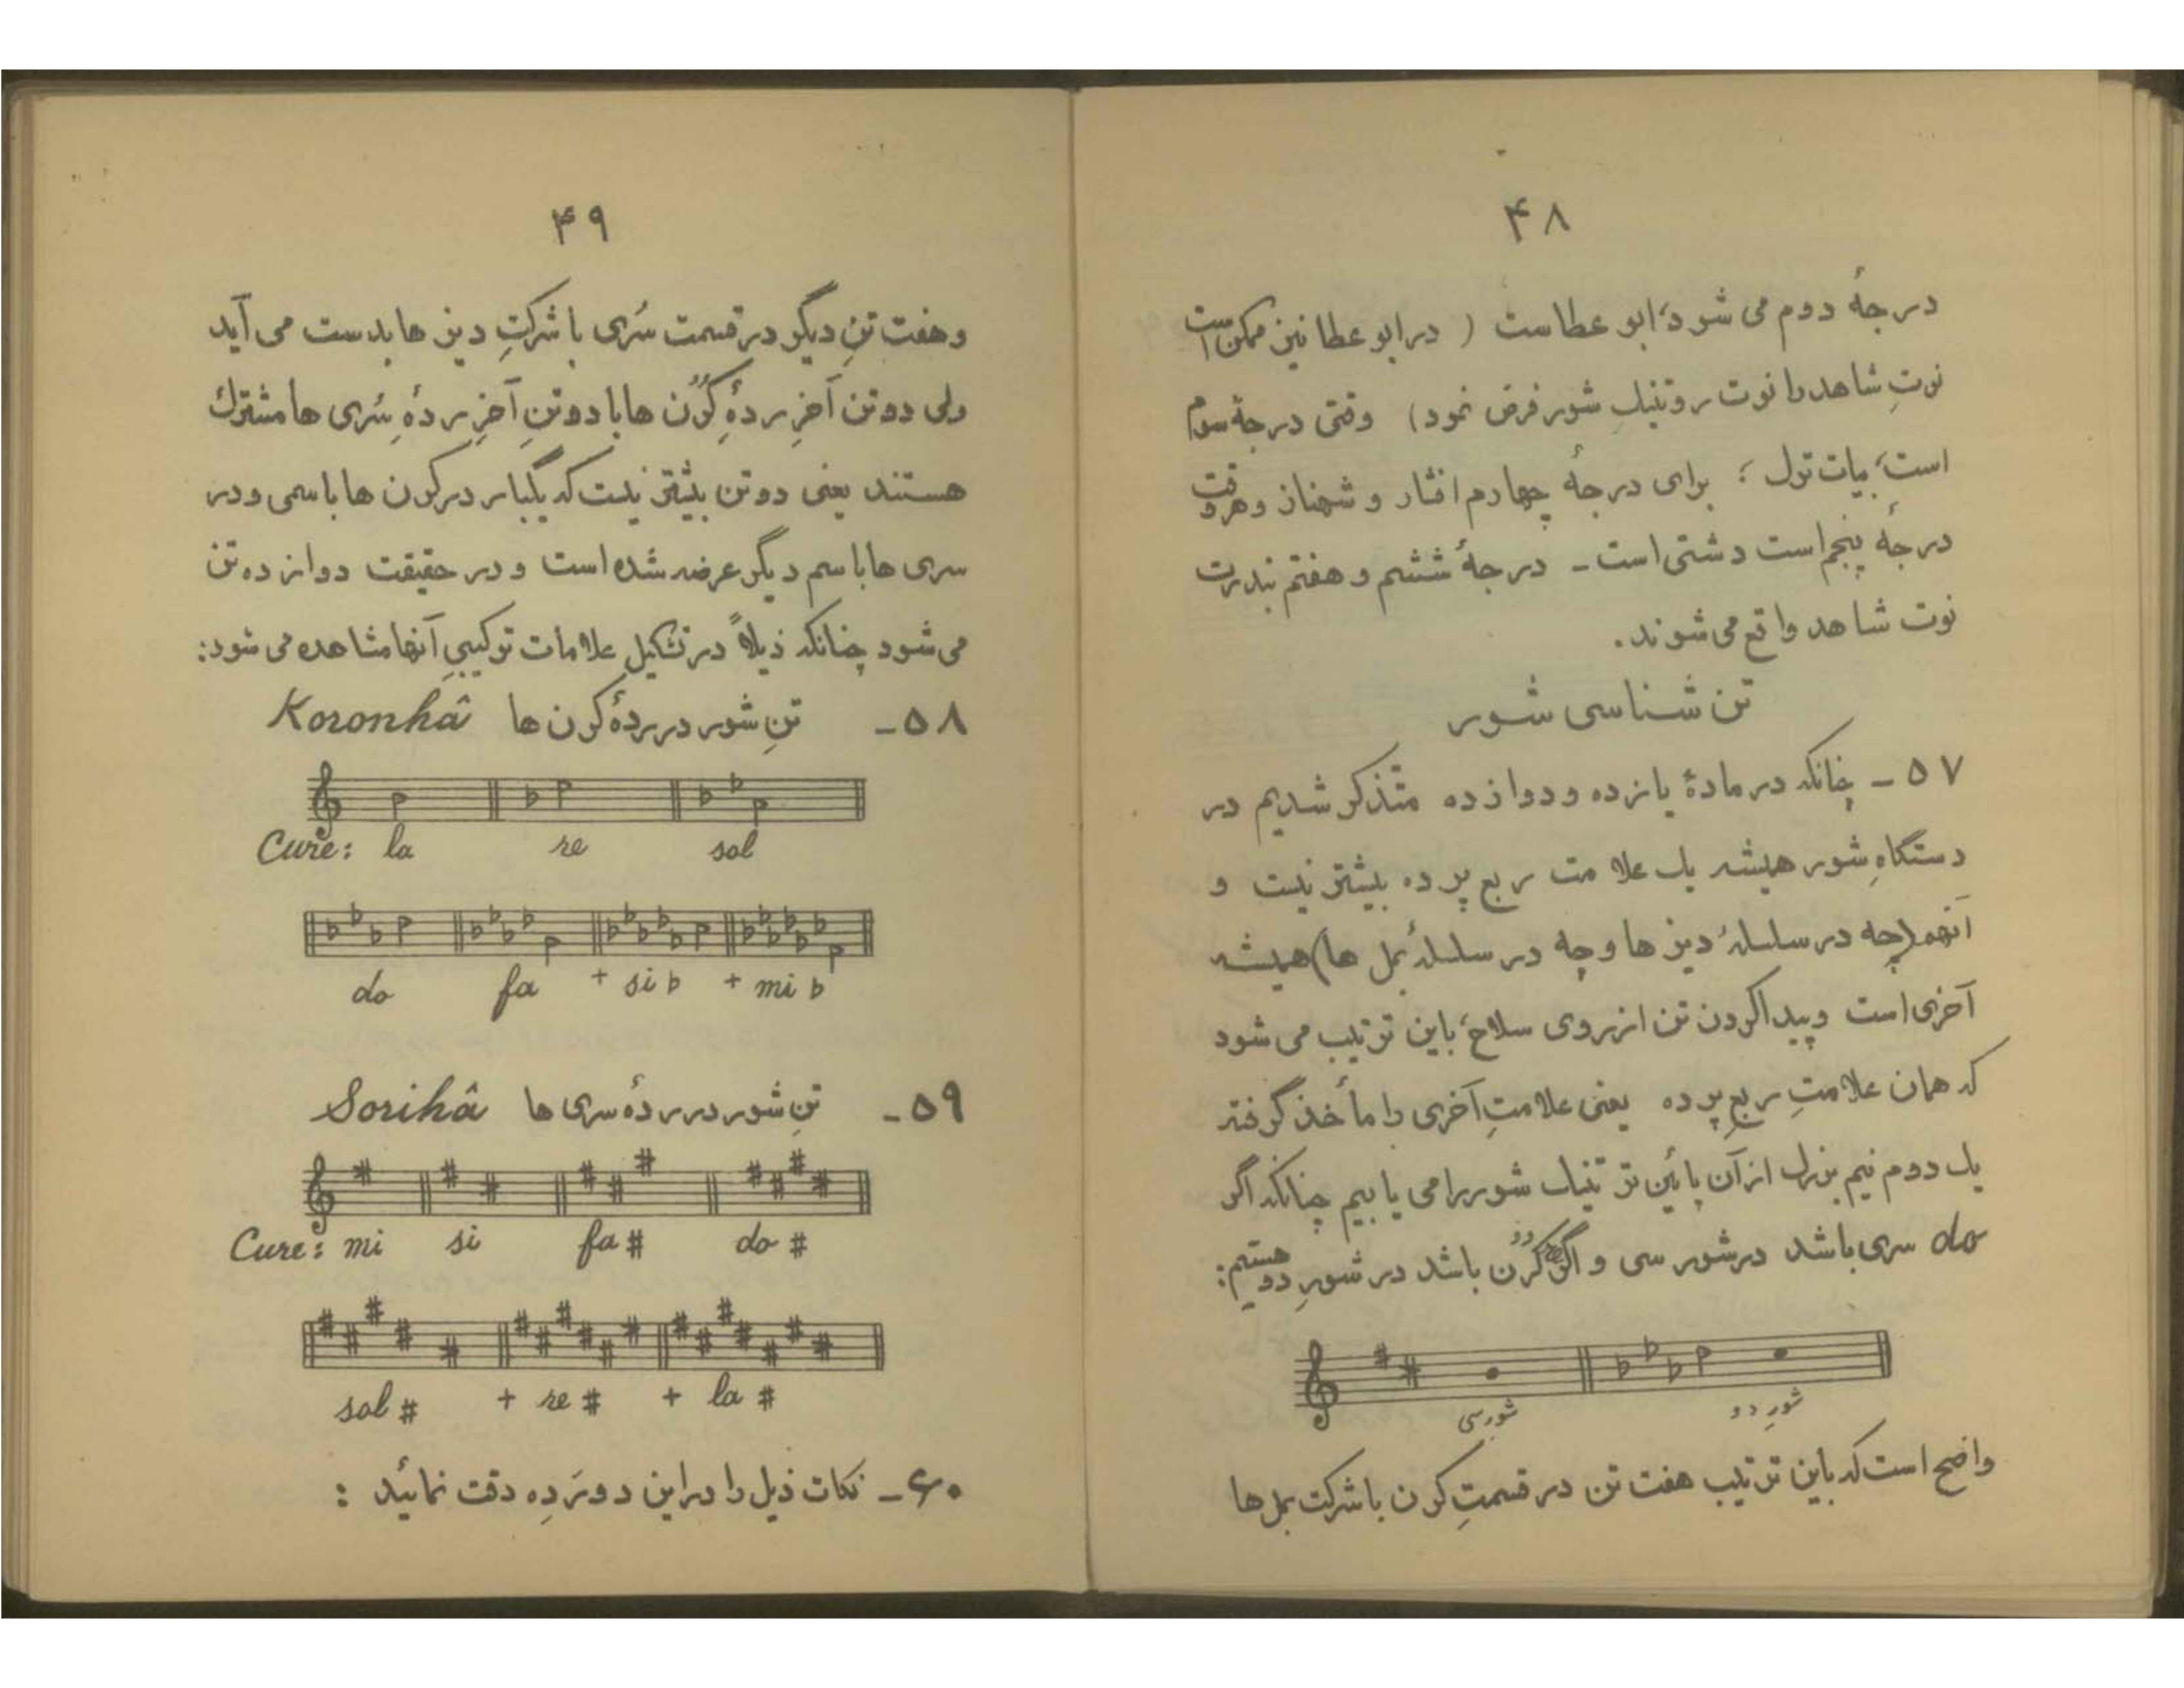 ۴۸
درجهٔ دوم می شود، ابو عطاست ( در ابو عطا نیز ممکن است
نوتِ شاهد را نوت روتنیکِ شور فرض نمود) وقتی درجهٔ سوم
است، بیات ترک ؛ برای درجهٔ چهارم افشار و شهناز و هر وقت
درجهٔ پنجم است دشتی است - درجهٔ ششم و هفتم بندرت
نوت شاهد واقع می شوند.
تن شناسی شور
۵۷ - چنانکه در مادهٔ یازده و دوازده متذکر شدیم در
دستگاهِ شور همیشه یک علامت ربع پرده بیشتر نیست و
آنهم (چه در سلسلهٔ دیزها و چه در سلسلهٔ بمل ها) همیشه
آخری است و پیدا کردن تن از روی سلاح، باین ترتیب می شود
که همان علامتِ ربعِ پرده یعنی علامتِ آخری را مأخذ گرفته
یک دوم نیم بزرگ از آن پائین تر تنیک شور را می یابیم چنانکه اگر
do سری باشد در شور سی و اگر رِ کُرُن باشد در شورِ دو هستیم:
شور سی شورِ دو
واضح است که باین ترتیب هفت تن در قسمتِ کرن با شرکت بمل ها
۴۹
و هفت تنِ دیگر در قسمت سُری با شرکتِ دیز ها بدست می آید
ولی دو تن آخرِ ردهٔ کُرُن ها با دو تنِ آخرِ ردهٔ سُری ها مشترک
هستند یعنی دو تن بیشتر نیست که یکبار در کرن ها باسمی و در
سری ها باسم دیگر عرضه شده است و در حقیقت دوازده تن
می شود چنانکه ذیلاً در تشکیل علامات ترکیبیِ آنها مشاهده می شود:
۵۸- تنِ شور در ردهٔ کرن ها Koronhâ
Cure: la re sol
do fa + si b + mi b
۵۹- تنِ شور در ردهٔ سری ها Sorihâ
Cure: mi si fa # do #
sol # + re # + la #
۶۰- نکات ذیل را در این دو رَدِه دقت نمائید :